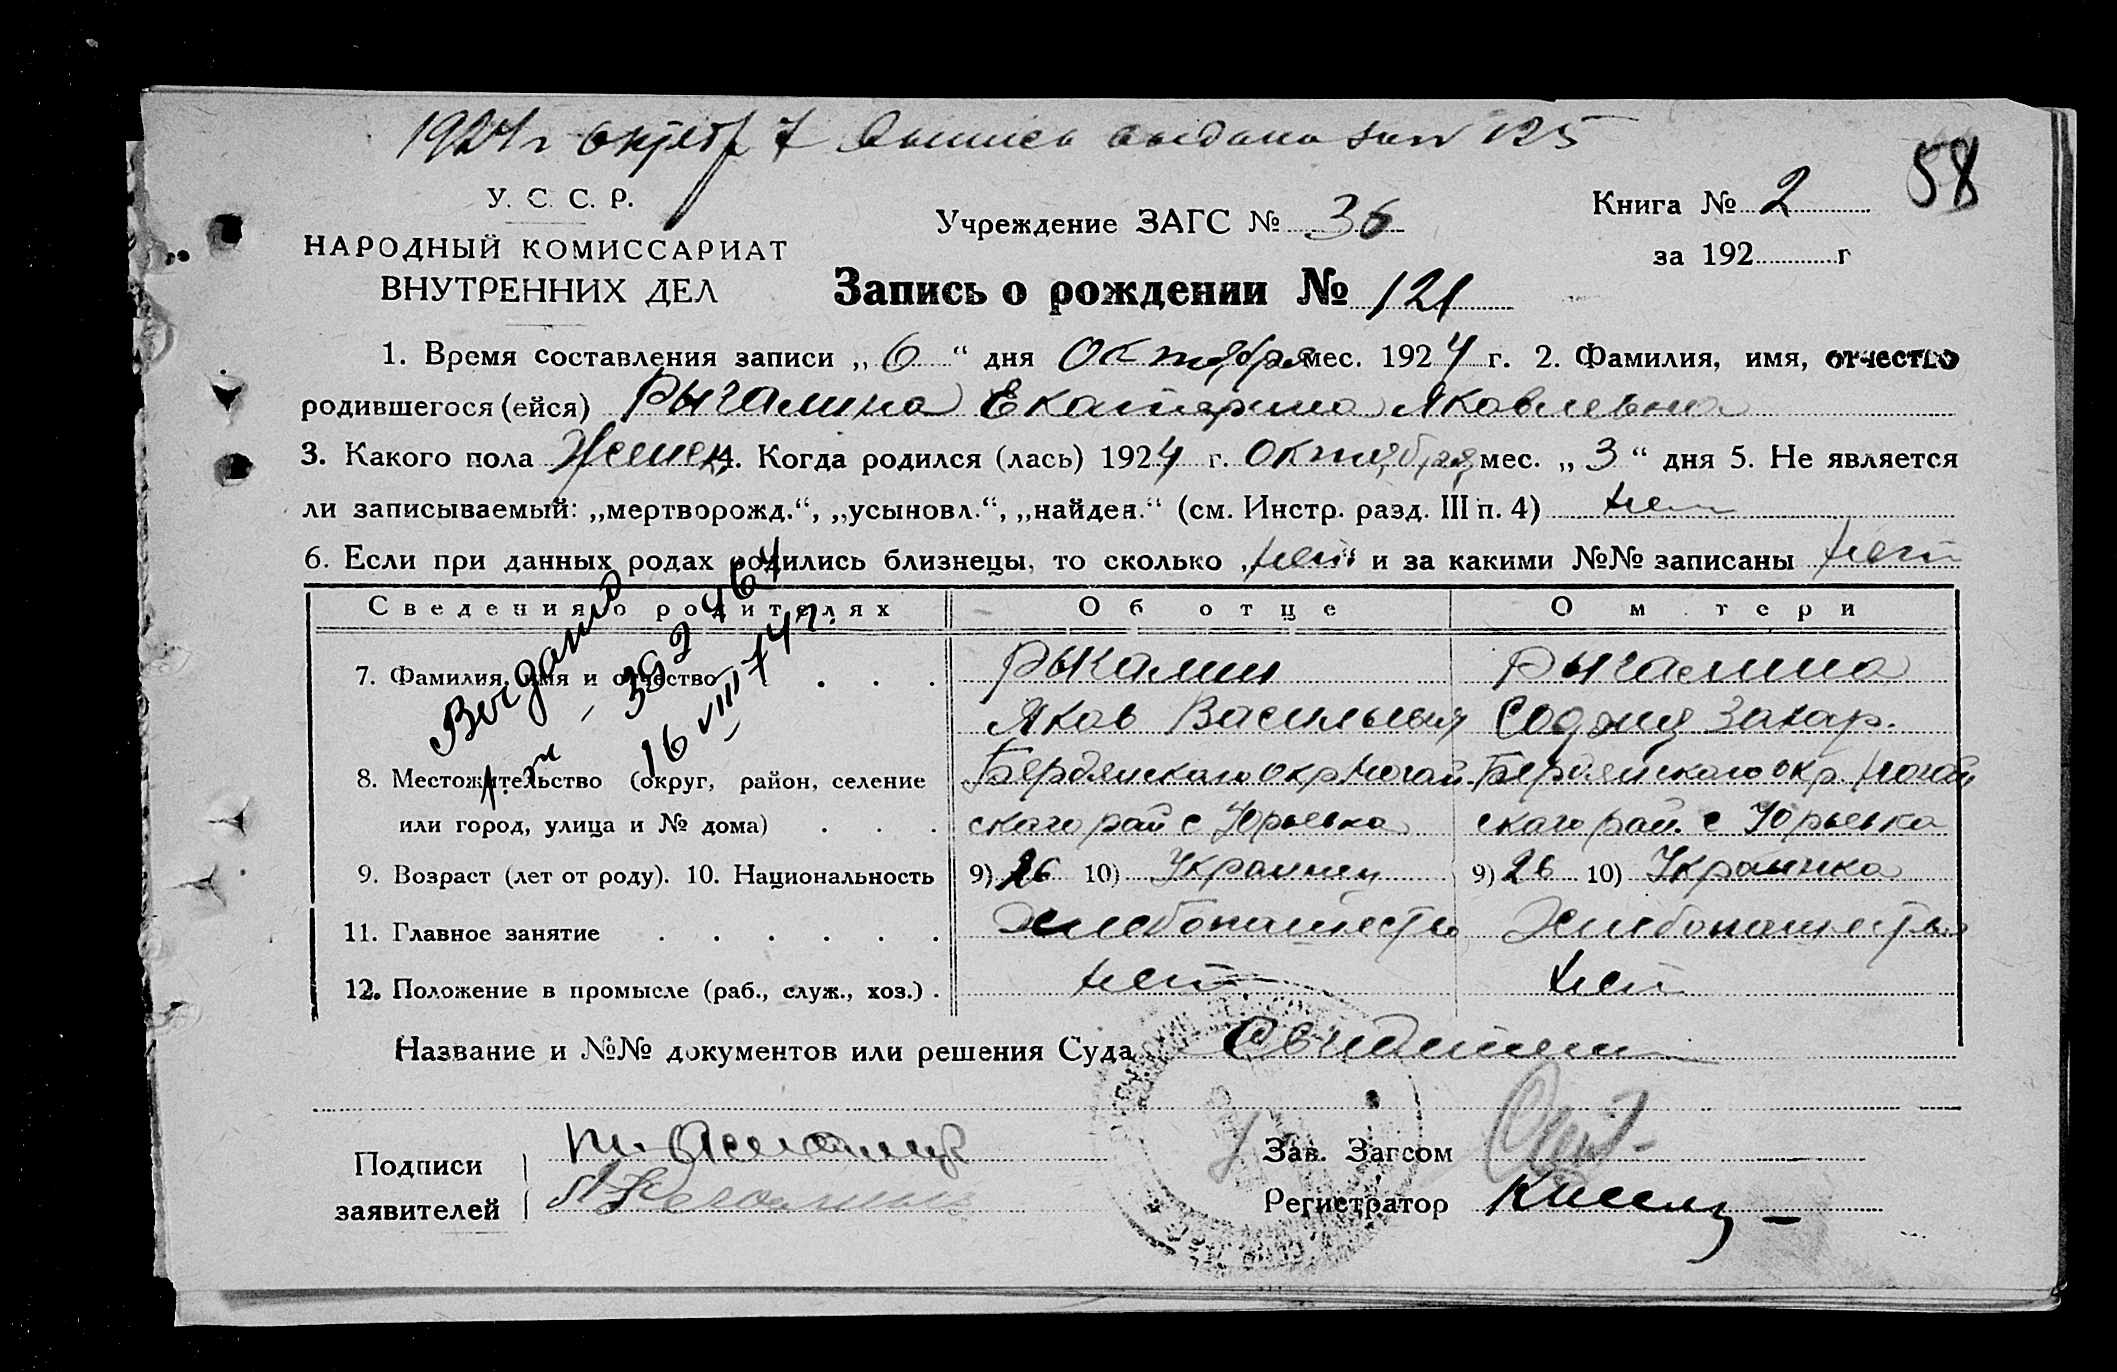 1924 г октября 7 выпись выдана за № 125
58
У. С. С. Р.
НАРОДНЫЙ КОМИССАРИАТ
ВНУТРЕННИХ ДЕЛ
Учреждение ЗАГС № 36
Книга № 2
за 192 г
Запись о рождении № 121
1. Время составления записи „ 6 “ дня Октября мес. 1924 г. 2. Фамилия, имя, отчество
родившегося (ейся) Рыгалина Екатерина Яковлевна
3. Какого пола Женск 4. Когда родился (лась) 1924 г. октября мес. „ 3 “ дня 5. Не является
ли записываемый: „мертворожд.“, „усыновл.“, „найден.“ (см. Инстр. разд. III п. 4) нет
6. Если при данных родах родились близнецы, то сколько „нет“ и за какими №№ записаны нет
Сведения о родителях Об отце О м тери
7. Фамилия, имя и отчество . . . . Рыгалин Рыгалина
Яков Васильевич София Захар.
8. Местожительство (округ, район, селение Бердянского окр Ногай Бердянского окр Ногай
или город, улица и № дома) . . . ского рай с Юрьевка ского рай. с Юрьевка
9. Возраст (лет от роду). 10. Национальность 9) 26 10) Украинец 9) 26 10) Украинка
11. Главное занятие . . . . . . Хлебопашество Хлебопашество
12. Положение в промысле (раб., служ., хоз.) . нет нет
Выдано
392464
16 VIII 74 г.
Название и №№ документов или решения Суда
Подписи
заявителей
Зав. Загсом
Регистратор